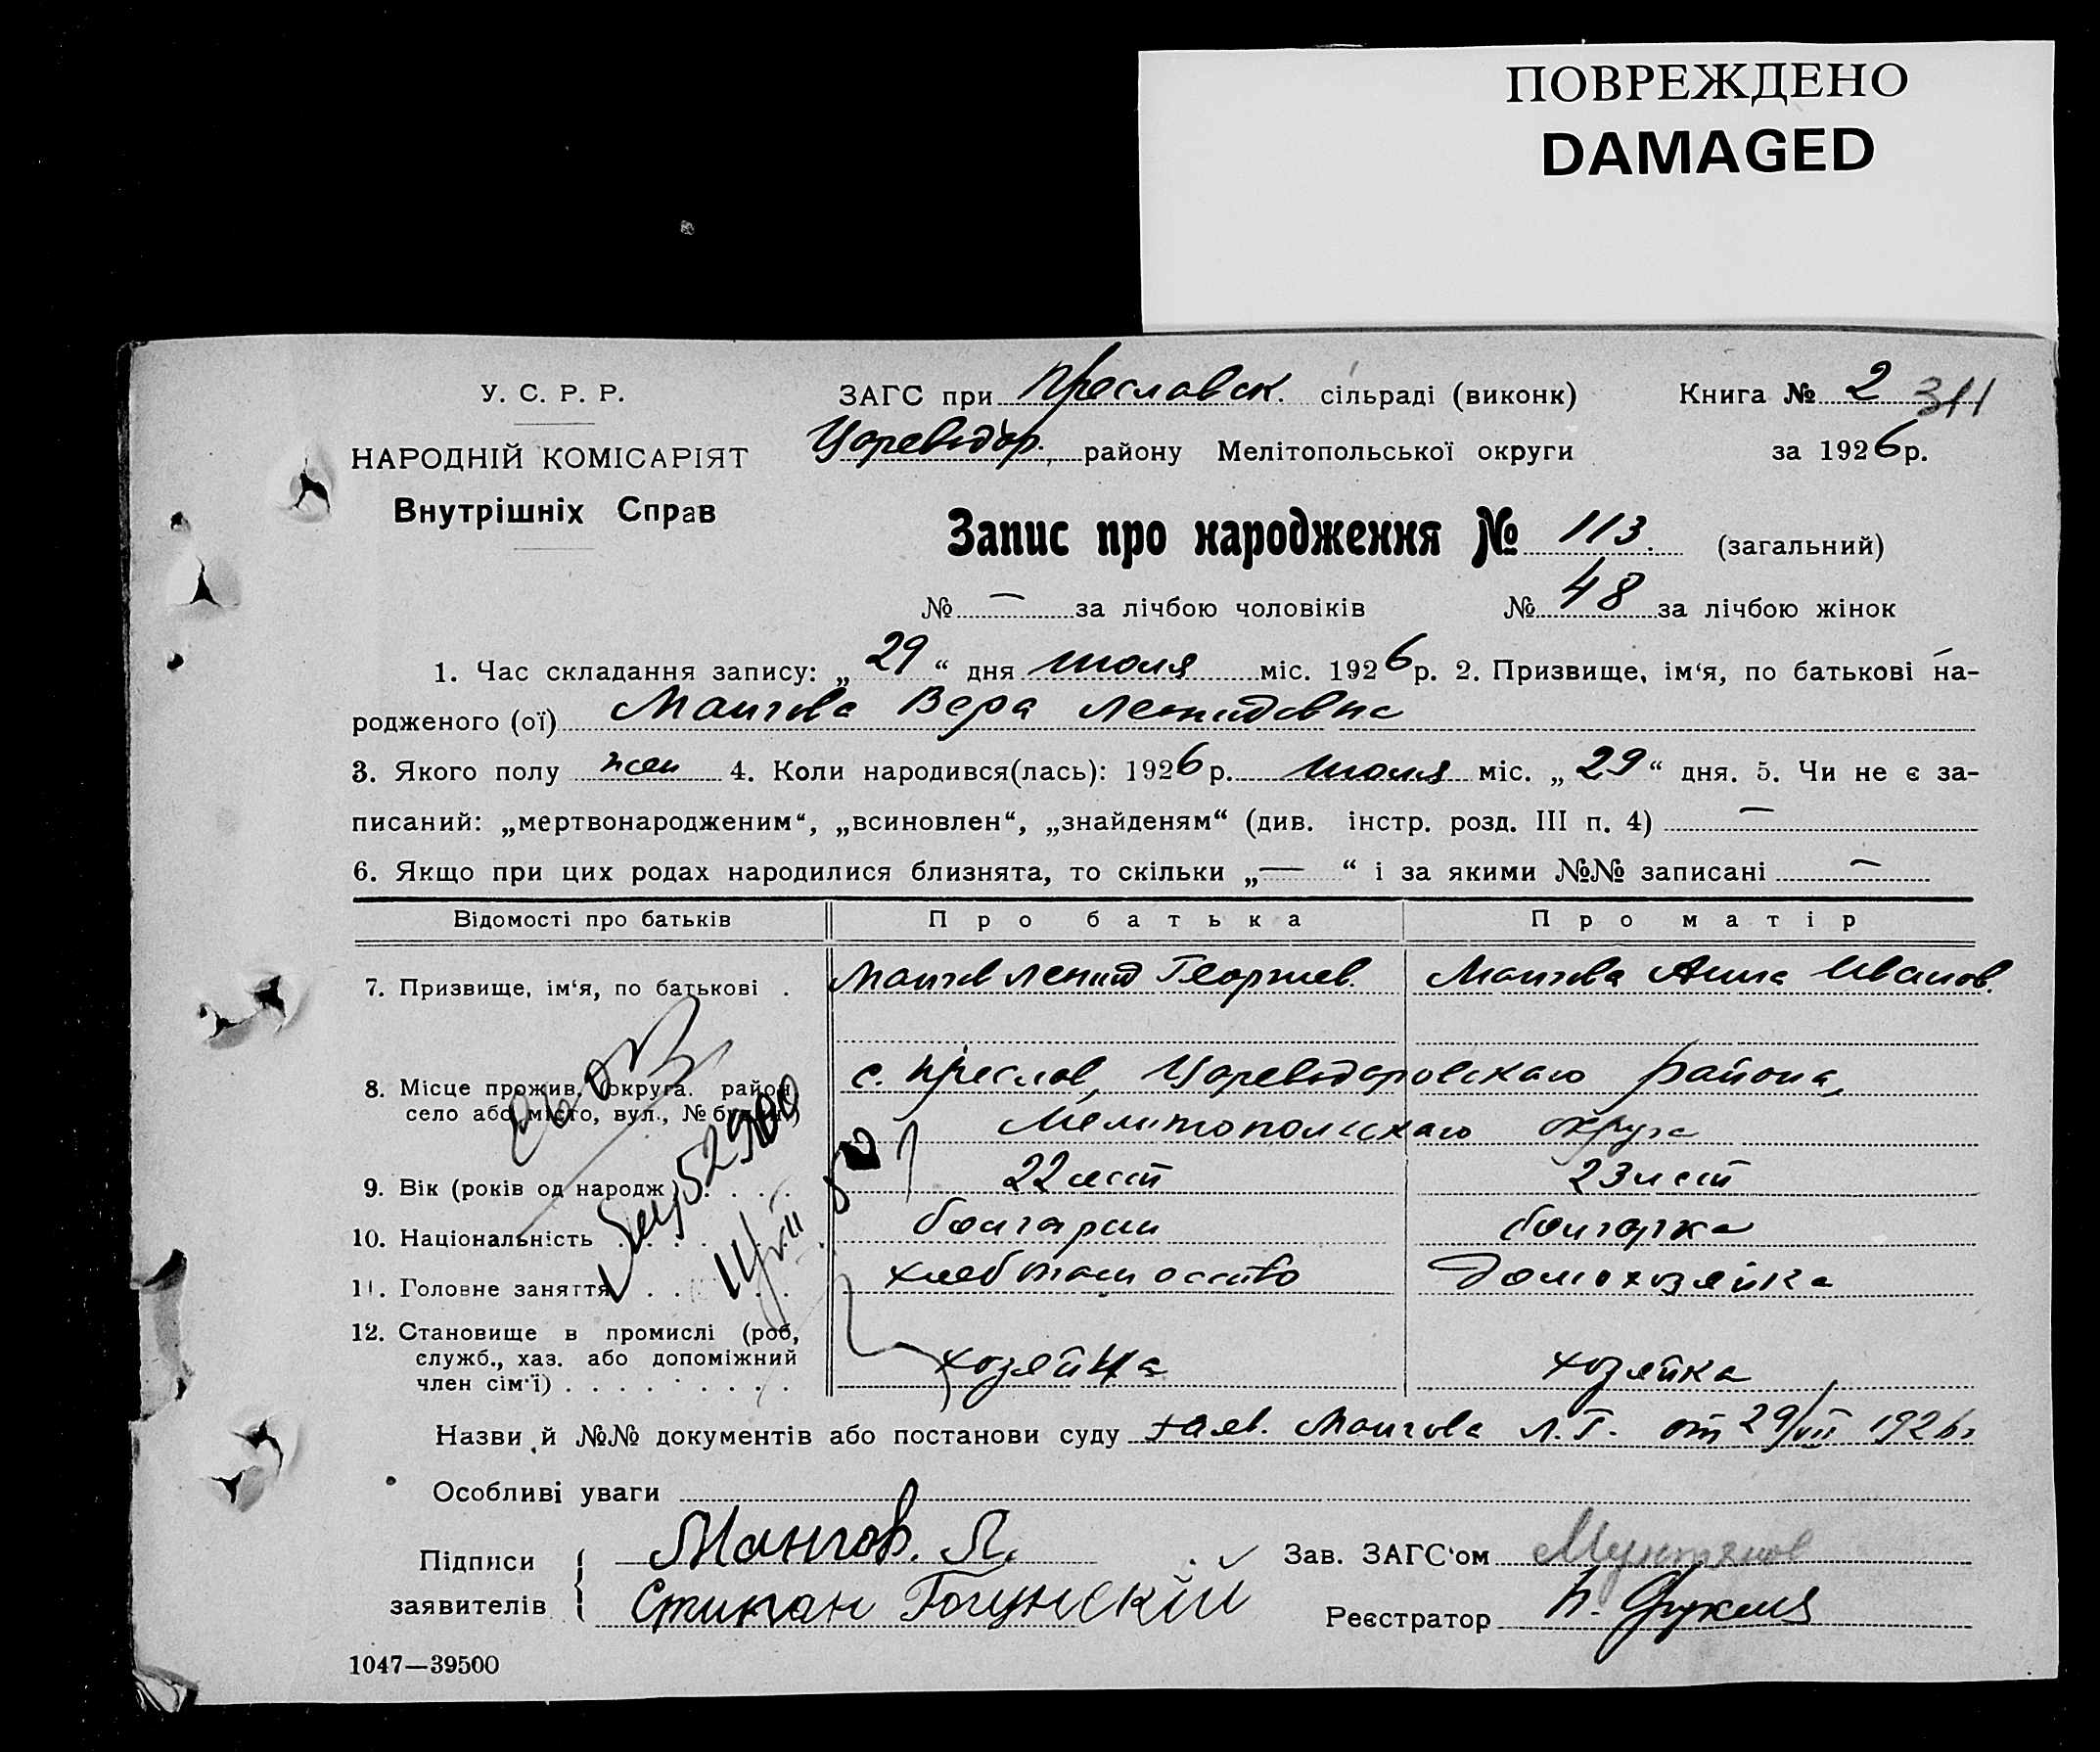 ПОВРЕЖДЕНО
DAMAGED
У. С. Р. Р.
НАРОДНІЙ КОМІСАРІЯТ
Внутрішніх Справ
ЗАГС при Преславск. сільраді (виконк)
Книга № 2 311
Цареводар. району Мелітопольської округи
за 1926 р.
Запис про народження № 113. (загальний)
№ — за лічбою чоловіків № 48 за лічбою жінок
1. Час складання запису: „ 29 “ дня июля міс. 1926 р. 2. Призвище, ім‘я, по батькові на-
родженого (ої) Мангова Вера Леонидовна
3. Якого полу жен 4. Коли народився(лась): 1926 р. июля міс. „ 29 “ дня. 5. Чи не є за-
писаний: „мертвонародженим“, „всиновлен“, „знайденям“ (див. інстр. розд. III п. 4) —
6. Якщо при цих родах народилися близнята, то скільки „— “ і за якими №№ записані —
Відомості про батьків Про батька Про матір
7. Призвище, ім‘я, по батькові . Мангов Леонид Георгиев. Мангова Анна Иванов.
8. Місце прожив. (округа. район, с. Преслав, Цареводаровскаго района,
село або місто, вул., № буд. Мелитопольскаго округа
9. Вік (років од народж 22 лет 23 лет
10. Національність болгарин болгарка
11. Головне заняття хлебопашество домохозяйка
12. Становище в промислі (роб,
служб., хаз. або допоміжний
член сім‘ї) хозяина хозяйка
Назви й №№ документів або постанови суду заяв. Мангова Л. Г. от 29/VII 1926 г
Особливі уваги
Підписи
заявителів
Мангов. Л.
Зав. ЗАГС‘ом
Реєстратор
1047—39500